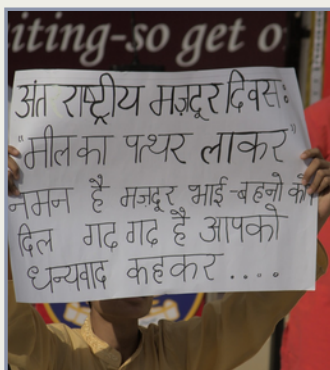 iting-so get o
अंत राष्ट्रीय मज़दूर दिवस:
"मील का पत्थर लाकर"
नमन है मजदूर भाई-बहनो को
दिल गद गद है आपको
धन्यवाद कहकर ....